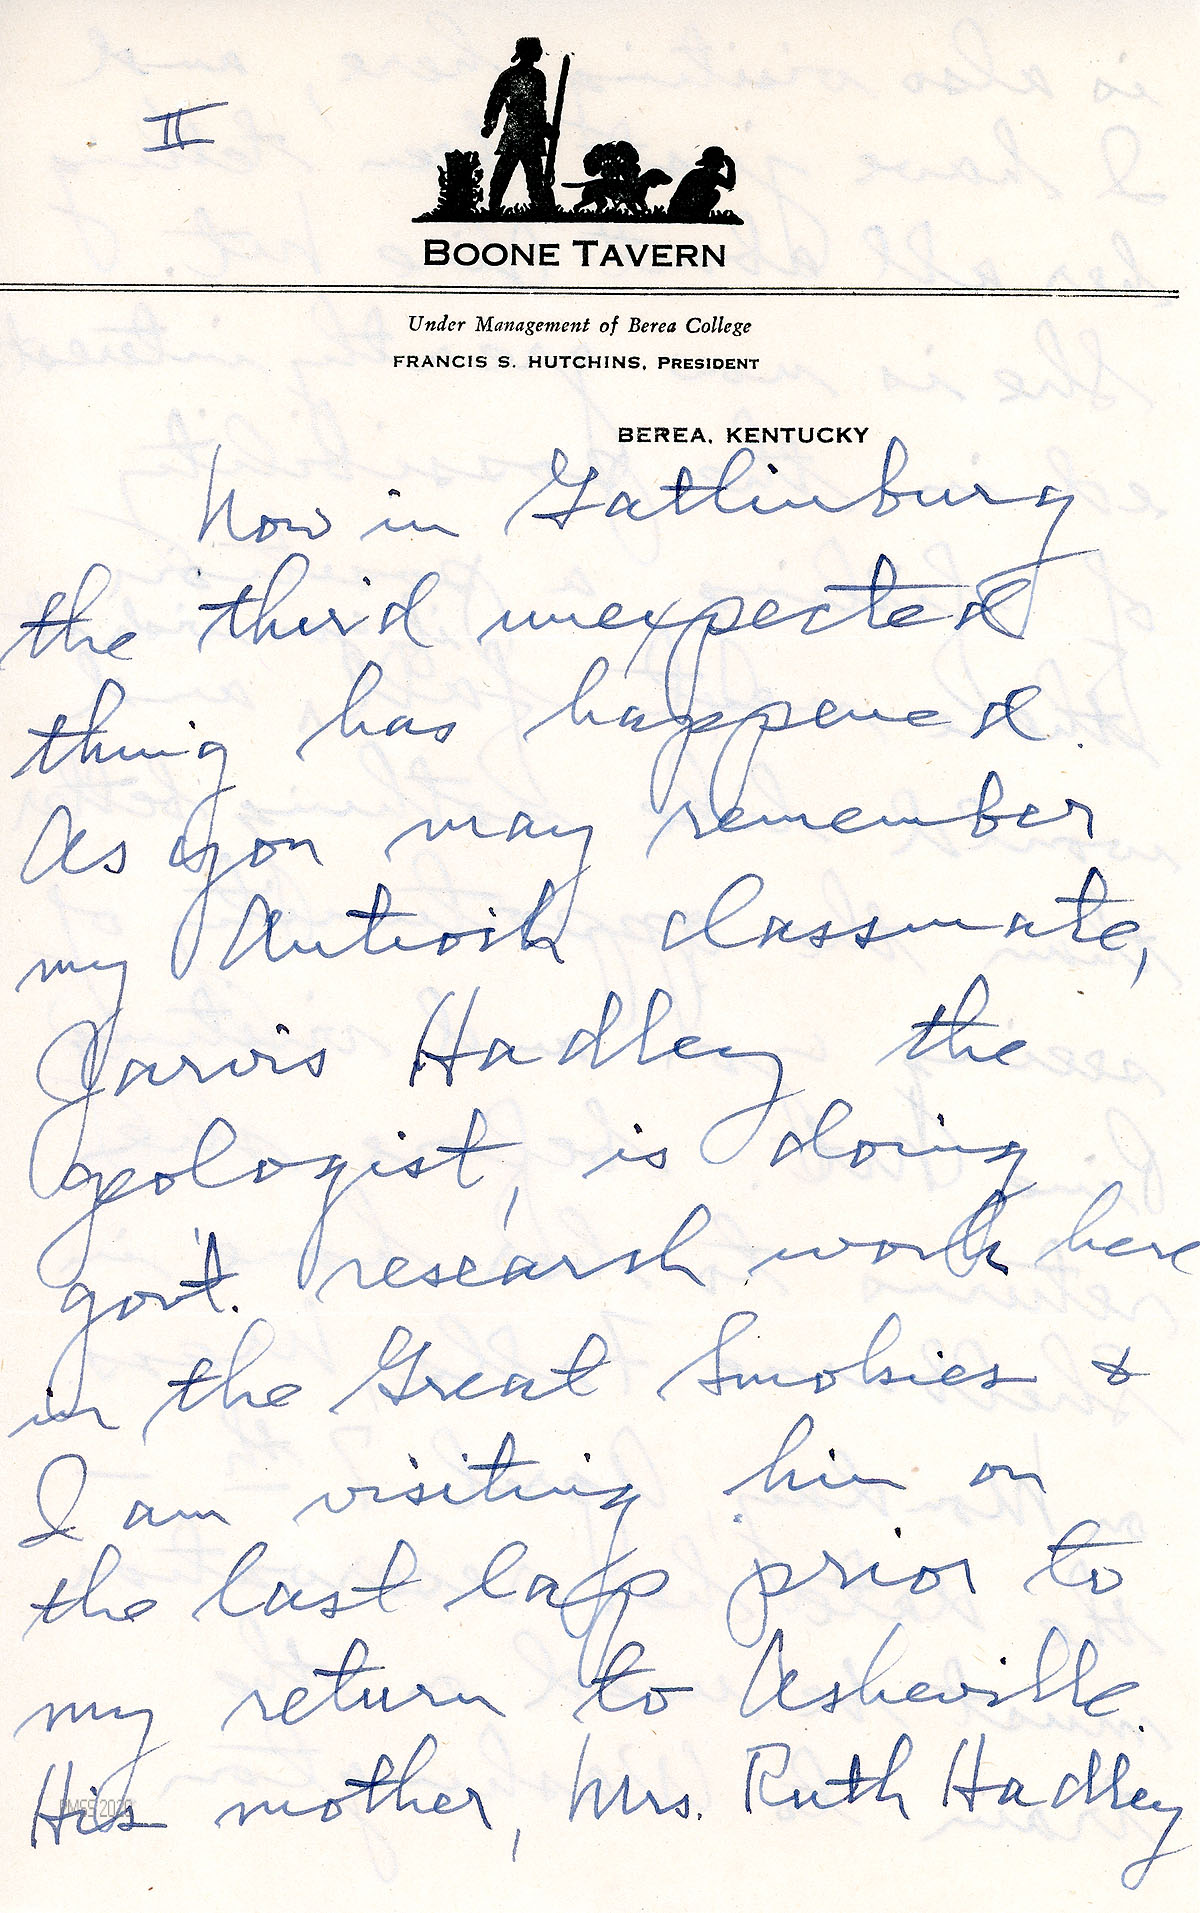 II
BOONE TAVERN
Under Management of Berea College
FRANCIS S. HUTCHINS, PRESIDENT
BEREA, KENTUCKY
Now in Gatlinburg
the third unexpected
thing has happened.
As you may remember
my Antioch classmate,
Jarvis Hadley the
geologist, is doing
gov't. research work here
in the Great Smokies &
I am visiting him on
the last lap prior to
my return to Asheville.
His mother, Mrs. Ruth Hadley
PMSS 2020